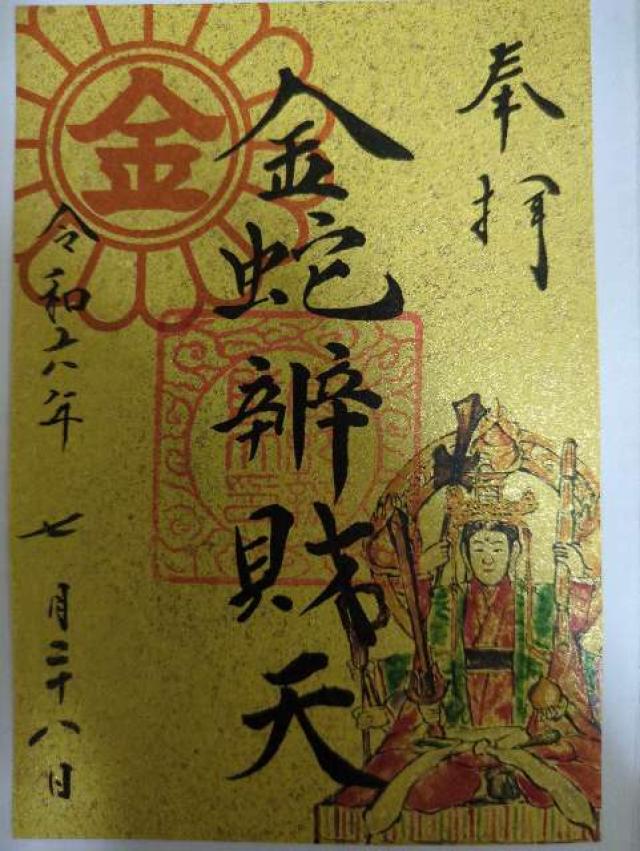 奉拝
金蛇辨財天
令和六年 七月二十八日
金